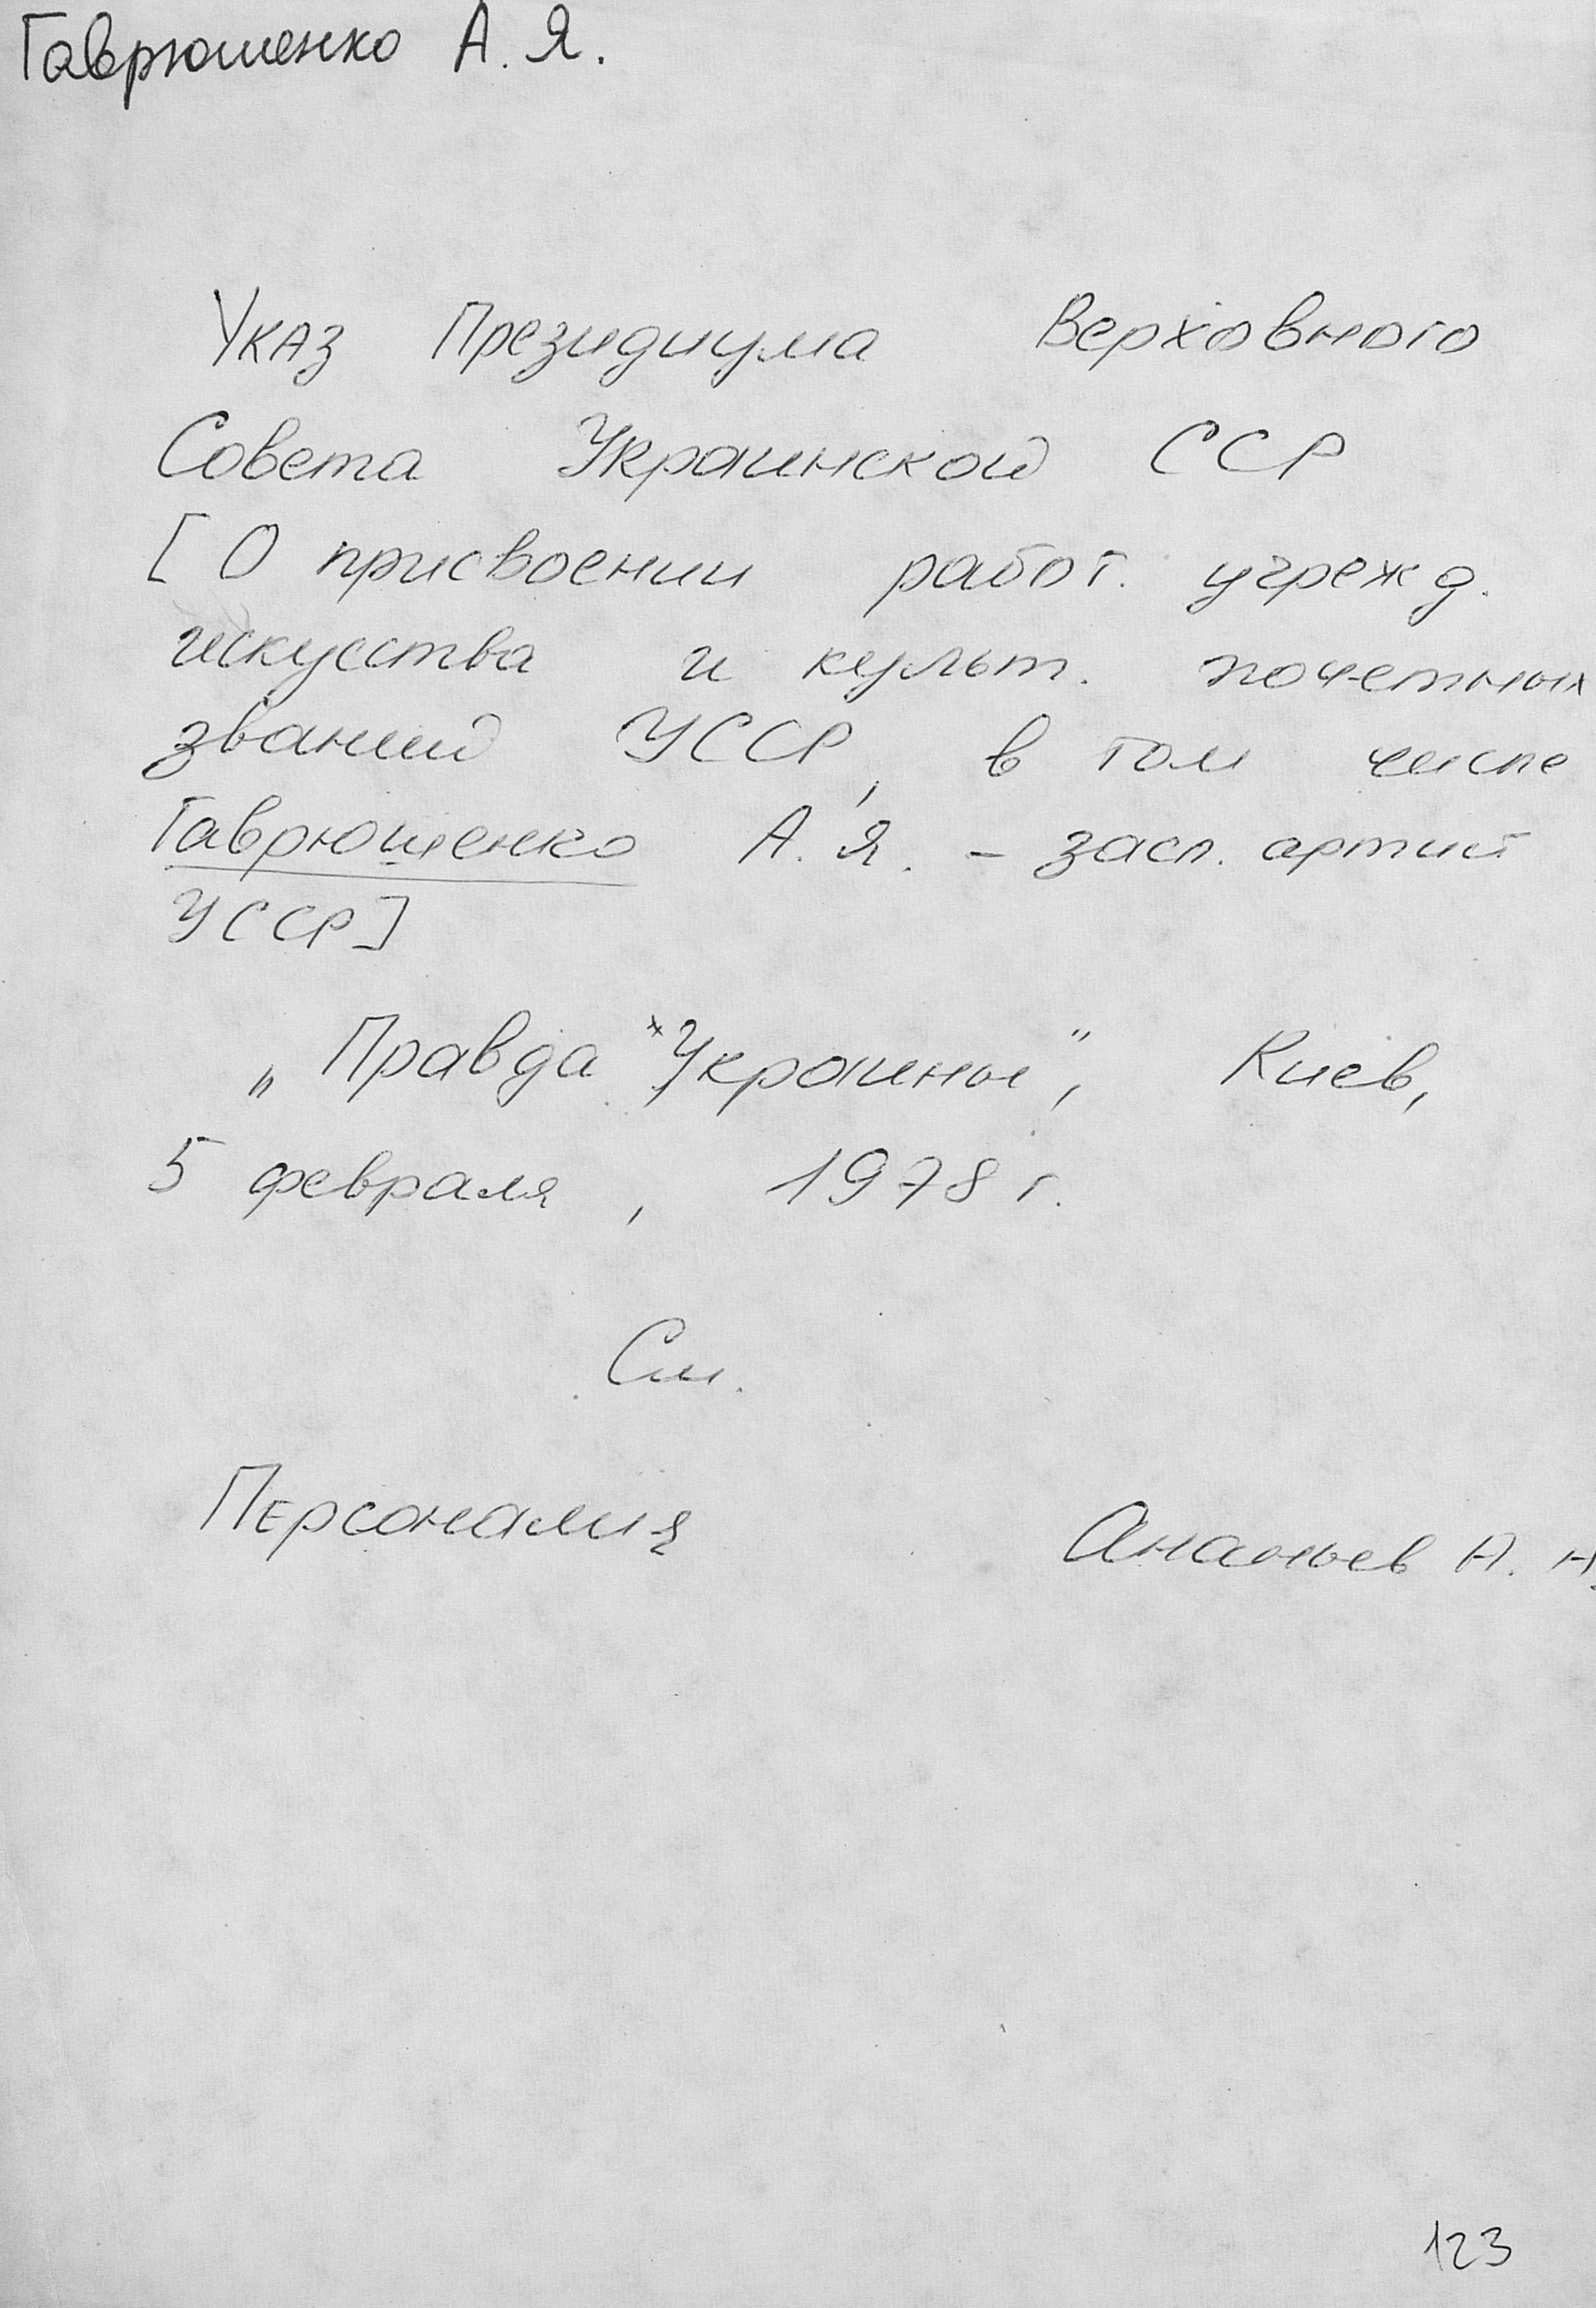 Гаврюшенко А. Я.
Указ Президиума Верховного
Совета Украинской ССР
[ О присвоении работ. учрежд.
искусства и культ. почетных
званий УССР, в том числе
Гаврюшенко А. Я. – засл. артист
УССР]
„Правда Украины", Киев,
5 февраля, 1978 г.
См.
Персоналия Ананьев А. А.
123